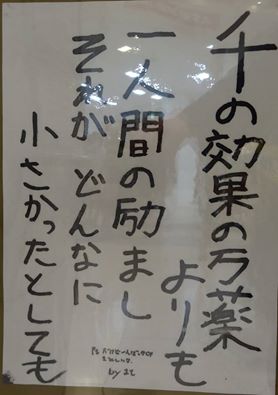 千の効果の万薬
よりも
一人間の励まし
それが どんなに
小さかったとしても